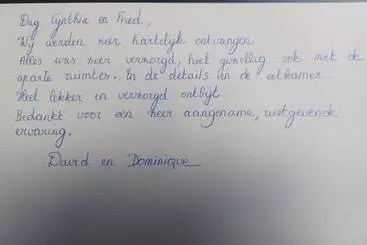 Dag Cynthia en Fried,
Wij werden zeer hartelijk ontvangen
Alles was zeer verzorgd, heel gezellig ook met de
aparte ruimtes. En de details in de eetkamer.
Heel lekker en verzorgd ontbijt.
Bedankt voor een zeer aangename, rustgevende
ervaring.
David en Dominique